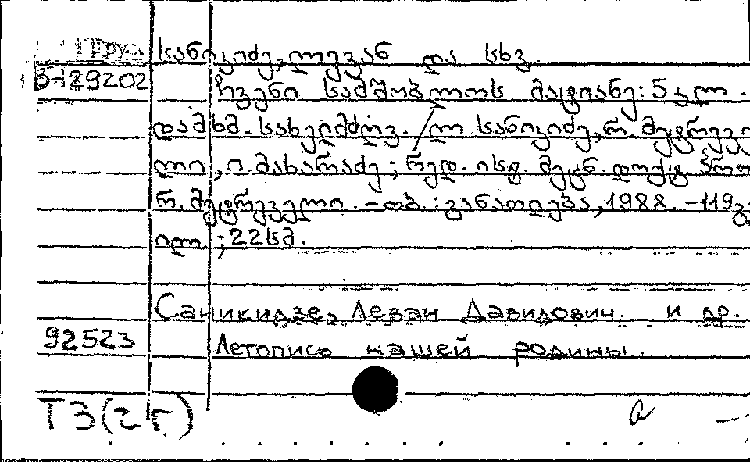 სანიკიძე, ლევან და სხვ.
Б-129202 ჩვენი სამშობლოს მატიანე: 5 კლ.
დამხმ. სახელმძღვ. / ლ სანიკიძე, რ. მეტრევე
ლი, ი. მახარაძე; რედ. ისტ. მეცნ. დოქტ პრო
რ. მეტრეველი. - თბ.: განათლება, 1988. - 119გ
ილ ; 22სმ.
Саникидзе, Леван Давидович. и др.
92523 Летопись нашей родины.
ТЗ(2Г)